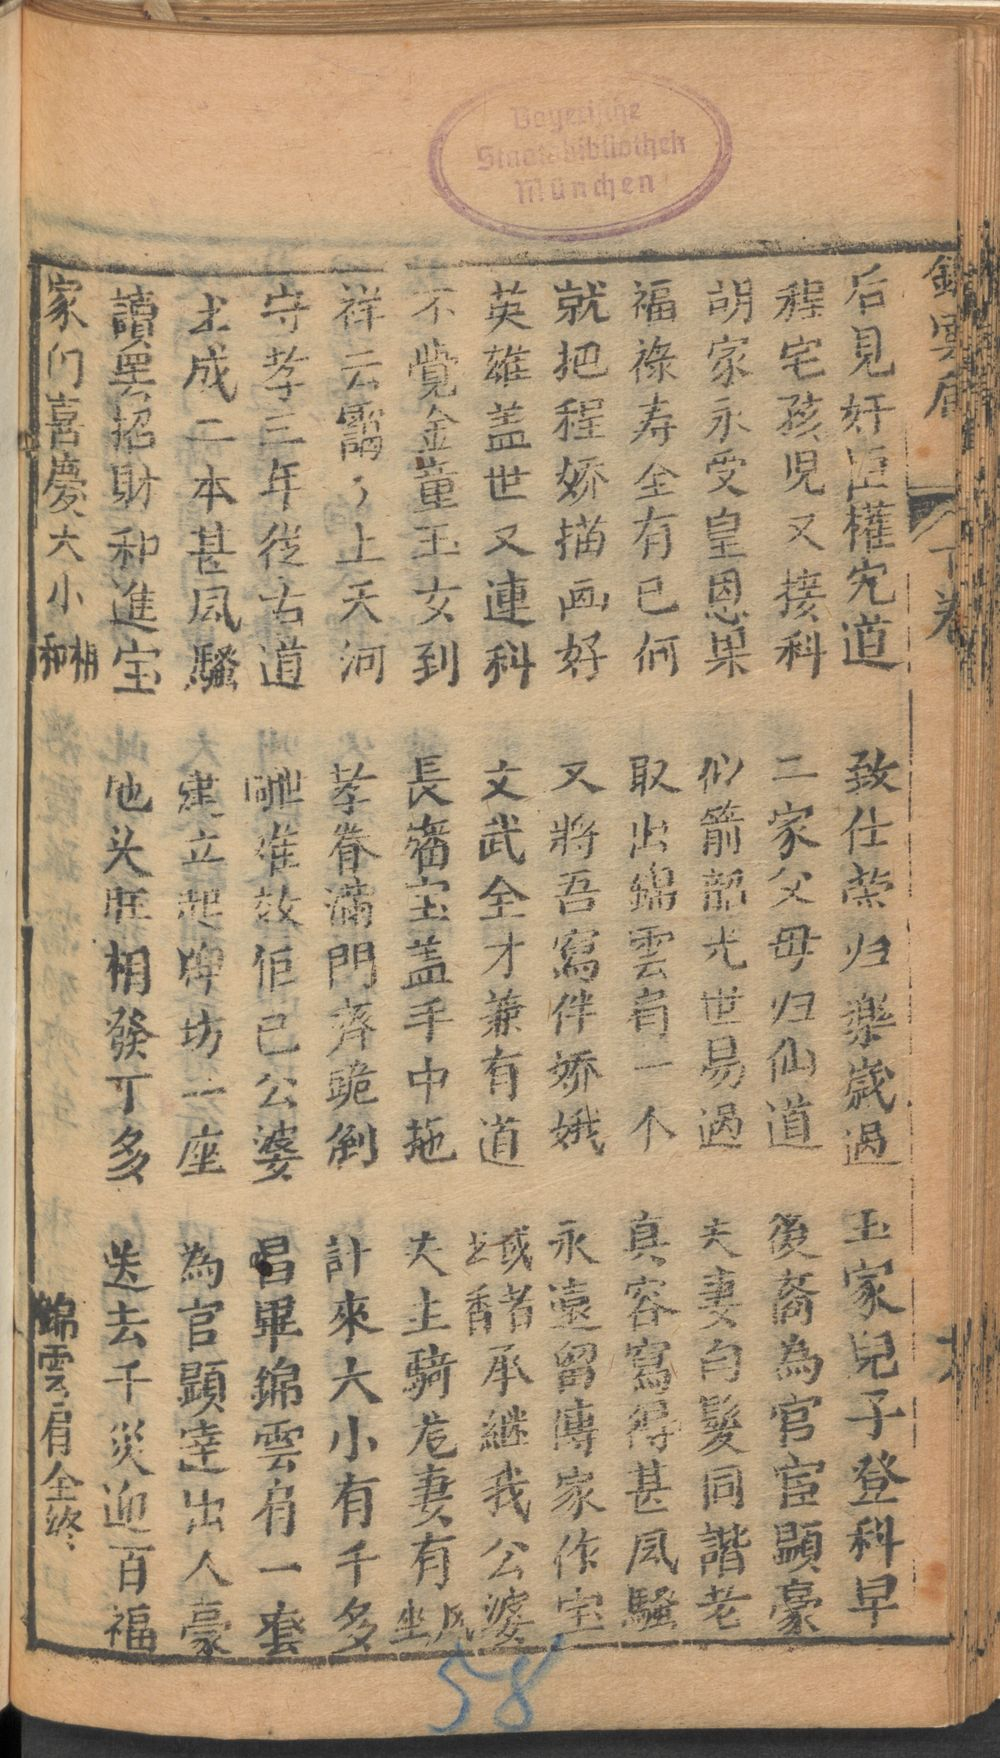 Bayerische
Staatsbibliothek
München
錦雲肩 下卷
后見奸臣權宄道 致仕荣归樂歲過 玉家兒子登科早
程宅孩児又接科 二家父母归仙道 後裔為官宦顕豪
胡家永受皇恩果 似箭韶光世易過 夫妻白髪同諧老
福祿寿全有已何 取出錦雲肩一个 真容寫得甚風騷
就把程娇描画好 又將吾寫伴娇娥 永遠留傳家作宝
英雄盖世又連科 文武全才兼有道 承継我公婆
不覺金童玉女到 長旛宝盖手中拖 夫主騎 妻有坐
祥云靄〻上天河 孝眷滿門齊跪倒 計來大小有千多
守孝三年從古道 誰敢 已公婆 昌畢錦雲肩一套
成二本甚風騷 建立起牌坊一座 為官顕達出人豪
讀 招財和進宝 地头旺相發丁多 送去千災迎百福
家门喜慶大小相和 錦雲肩全終
58